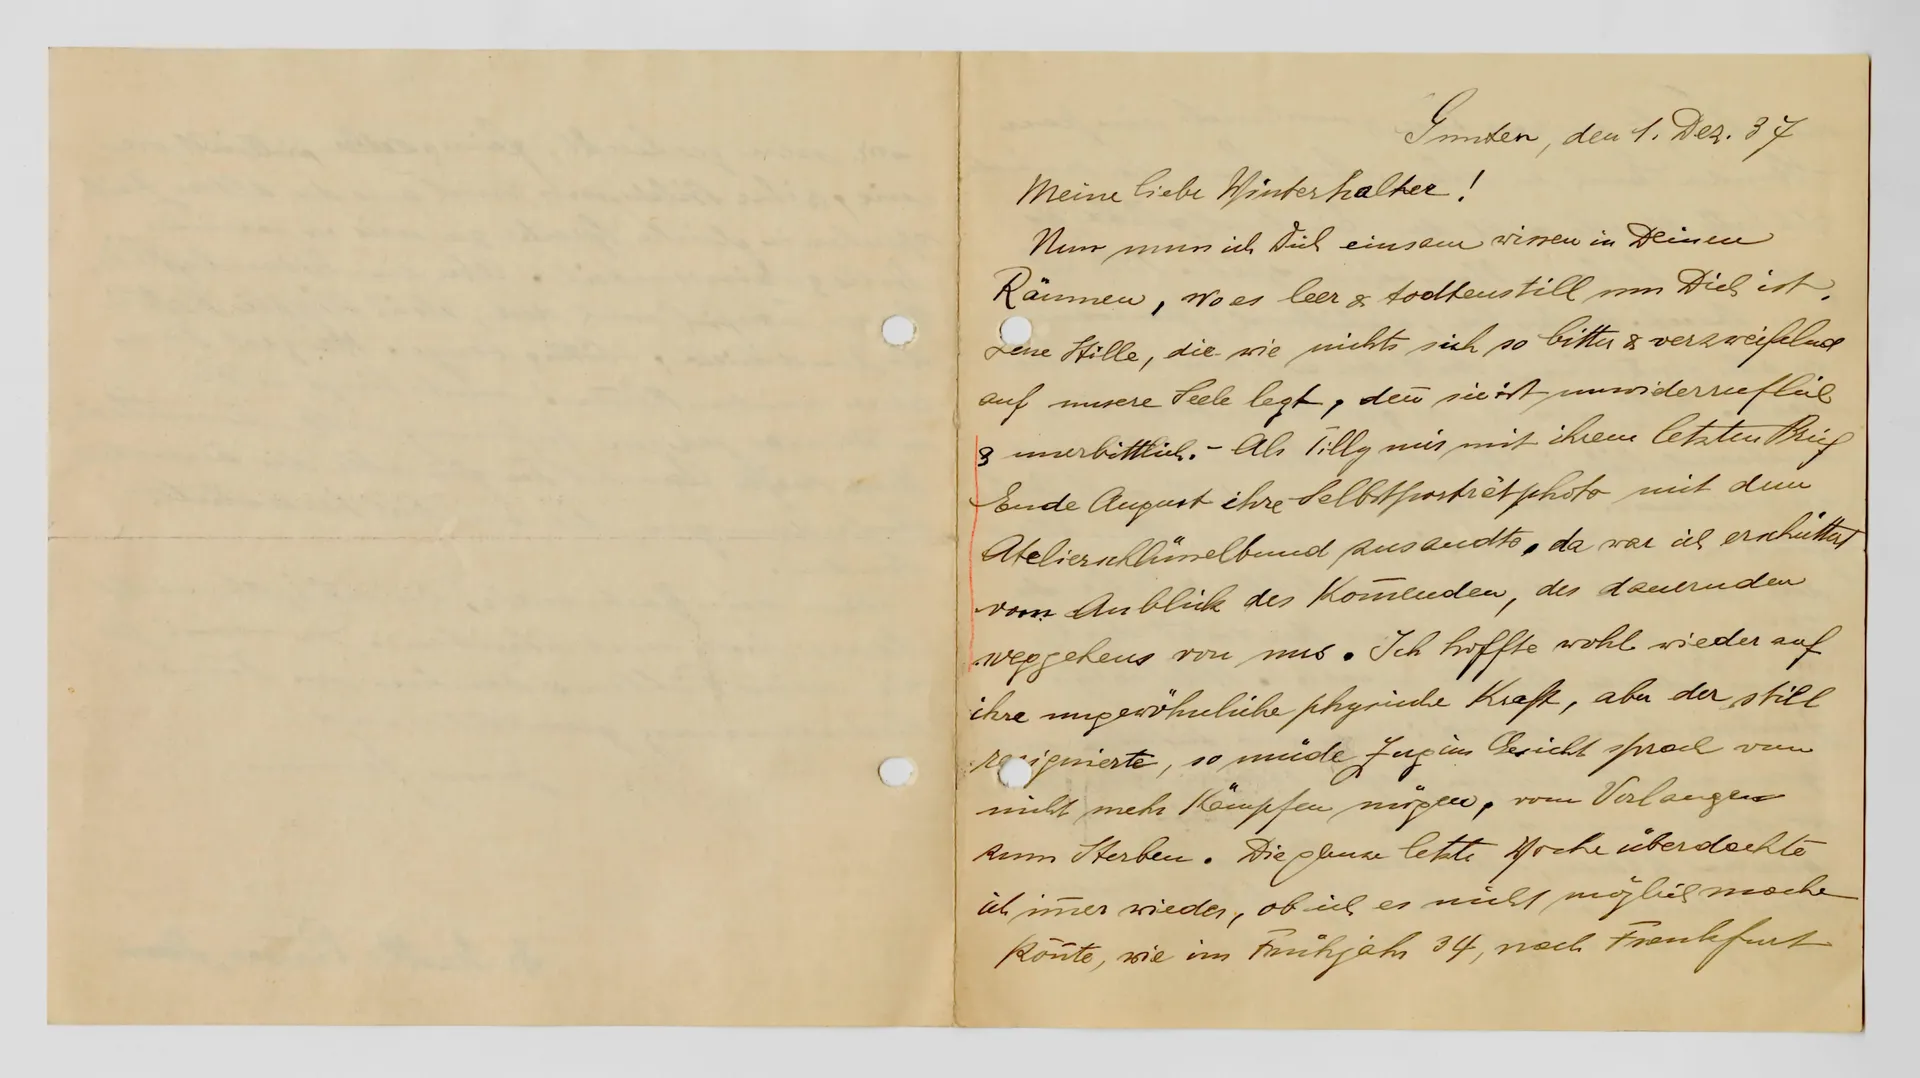 Gunten, den 1. Dez. 37
Meine liebe Winterhalter!
Nun muss ich Dich einsam wissen in Deinen
Räumen, wo es leer & todtenstill um Dich ist.
Jene Stille, die wie nichts sich so bitter & verzweifelnd
auf unsere Seele legt, den̄ sie ist unwiderruflich
& unerbittlich. – Als Tilly mir mit ihrem letzten Brief
Ende August ihre Selbstporträtphoto mit dem
Atelierschlüsselbund zusandte, da war ich erschüttert
vom Anblick des Kom̄enden, des dauernden
weggehens von uns. Ich hoffte wohl wieder auf
ihre ungewöhnliche physische Kraft, aber der still
resignierte, so müde Zug im Gesicht sprach vom
nicht mehr Kämpfen mögen, vom Verlangen
zum Sterben. Die ganze letzte Woche überdachte
ich im̄er wieder, ob ich es nicht möglich machen
kön̄te, wie im Frühjahr 34, nach Frankfurt